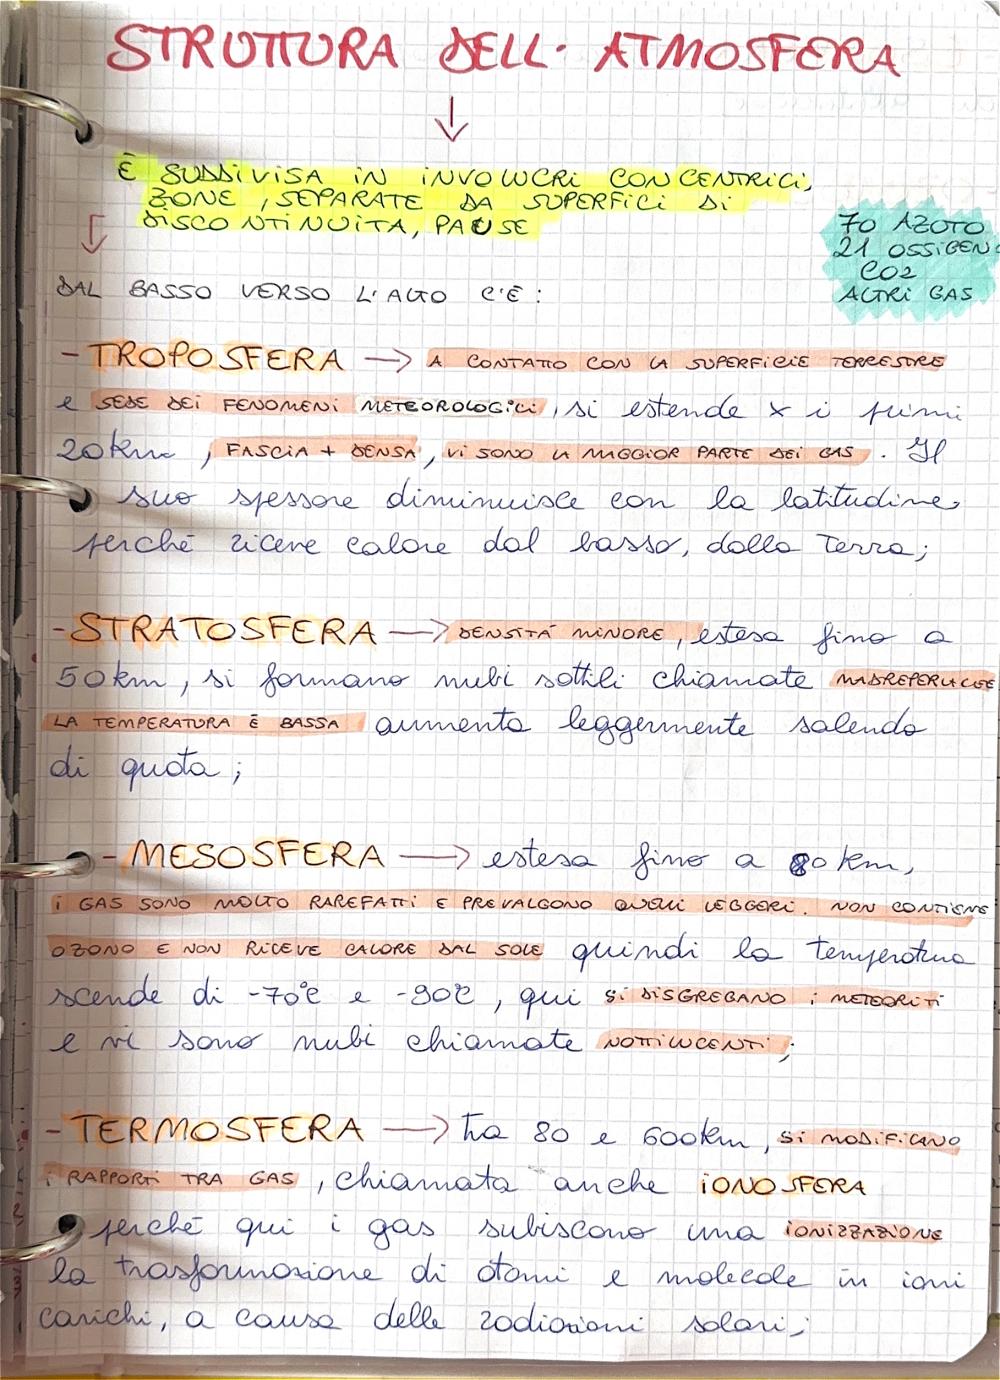 STRUTTURA DELL' ATMOSFERA
È SUDDIVISA IN INVOLUCRI CONCENTRICI,
ZONE, SEPARATE DA SUPERFICI DI
DISCONTINUITA, PAUSE
70 AZOTO
21 OSSIGENO
CO2
ALTRI GAS
DAL BASSO VERSO L'ALTO C'È:
- TROPOSFERA → A CONTATTO CON LA SUPERFICIE TERRESTRE
e SEDE DEI FENOMENI METEOROLOGICI, si estende x i primi
20km, FASCIA + DENSA, VI SONO LA MAGGIOR PARTE DEI GAS. Il
suo spessore diminuisce con la latitudine,
perché riceve calore dal basso, dalla Terra;
- STRATOSFERA → DENSITÁ MINORE, estesa fino a
50km, si formano nubi sottili chiamate MADREPERLACEE
LA TEMPERATURA È BASSA aumenta leggermente salendo
di quota;
- MESOSFERA → estesa fino a 80km,
I GAS SONO MOLTO RAREFATTI E PREVALGONO QUELLI LEGGERI. NON CONTIENE
OZONO E NON RICEVE CALORE DAL SOLE quindi la temperatura
scende di -70°C e -90°C, qui SI DISGREGANO I METEORITI
e vi sono nubi chiamate NOTTILUCENTI;
- TERMOSFERA → tra 80 e 600km, SI MODIFICANO
I RAPPORTI TRA GAS, chiamata anche IONOSFERA
perché qui i gas subiscono una IONIZZAZIONE
la trasformazione di atomi e molecole in ioni
carichi, a causa delle radiazioni solari;